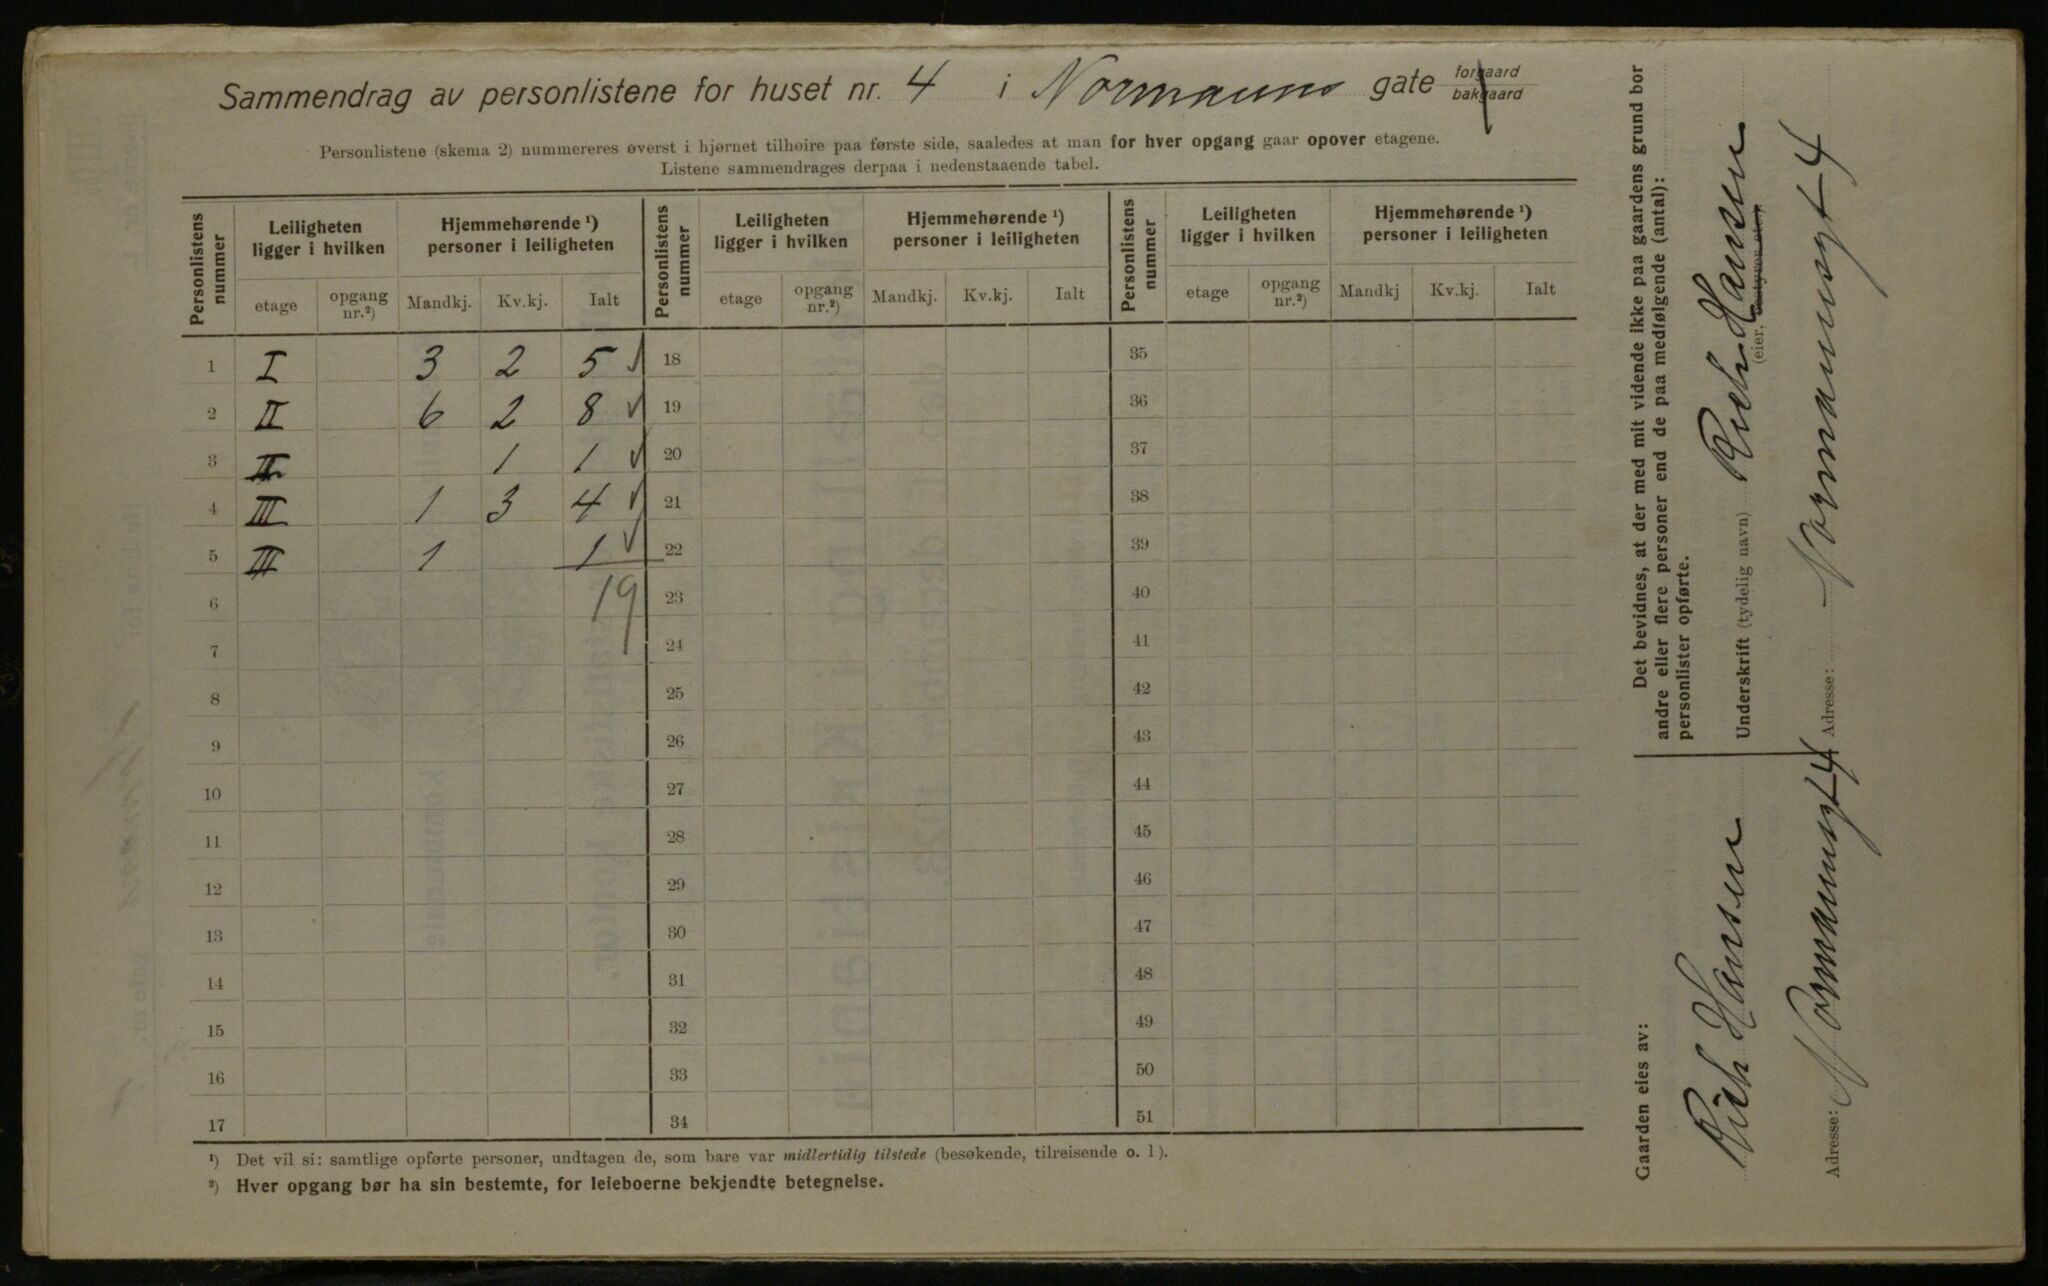 Sammendrag av personlistene for huset nr. 4 i Normanns gate forgaard bakgaard
Personlistene (skema 2) nummereres øverst i hjørnet tilhøire paa første side, saaledes at man for hver opgang gaar opover etagene.
Listene sammendrages derpaa i nedenstaaende tabel.
Personlistens nummer | Leiligheten ligger i hvilken | Hjemmehørende ¹) personer i leiligheten | Personlistens nummer | Leiligheten ligger i hvilken | Hjemmehørende ¹) personer i leiligheten | Personlistens nummer | Leiligheten ligger i hvilken | Hjemmehørende ¹) personer i leiligheten
etage | opgang nr.²) | Mandkj. | Kv.kj. | Ialt | etage | opgang nr.²) | Mandkj. | Kv.kj. | Ialt | etage | opgang nr.²) | Mandkj | Kv.kj. | Ialt
1 I 3 2 5 ✓ 18 35
2 II 6 2 8 ✓ 19 36
3 II 1 1 ✓ 20 37
4 III 1 3 4 ✓ 21 38
5 III 1 1 ✓ 22 39
6 19 23 40
7 24 41
8 25 42
9 26 43
10 27 44
11 28 45
12 29 46
13 30 47
14 31 48
15 32 49
16 33 50
17 34 51
¹) Det vil si: samtlige opførte personer, undtagen de, som bare var midlertidig tilstede (besøkende, tilreisende o. l).
²) Hver opgang bør ha sin bestemte, for leieboerne bekjendte betegnelse.
Gaarden eies av:
Rich Hansen
Adresse: Normannsgt 4
Det bevidnes, at der med mit vidende ikke paa gaardens grund bor
andre eller flere personer end de paa medfølgende (antal):
personlister opførte.
Underskrift (tydelig navn) Rich Hansen
(eier, bestyrer etc.)
Adresse: Normannsgt 4